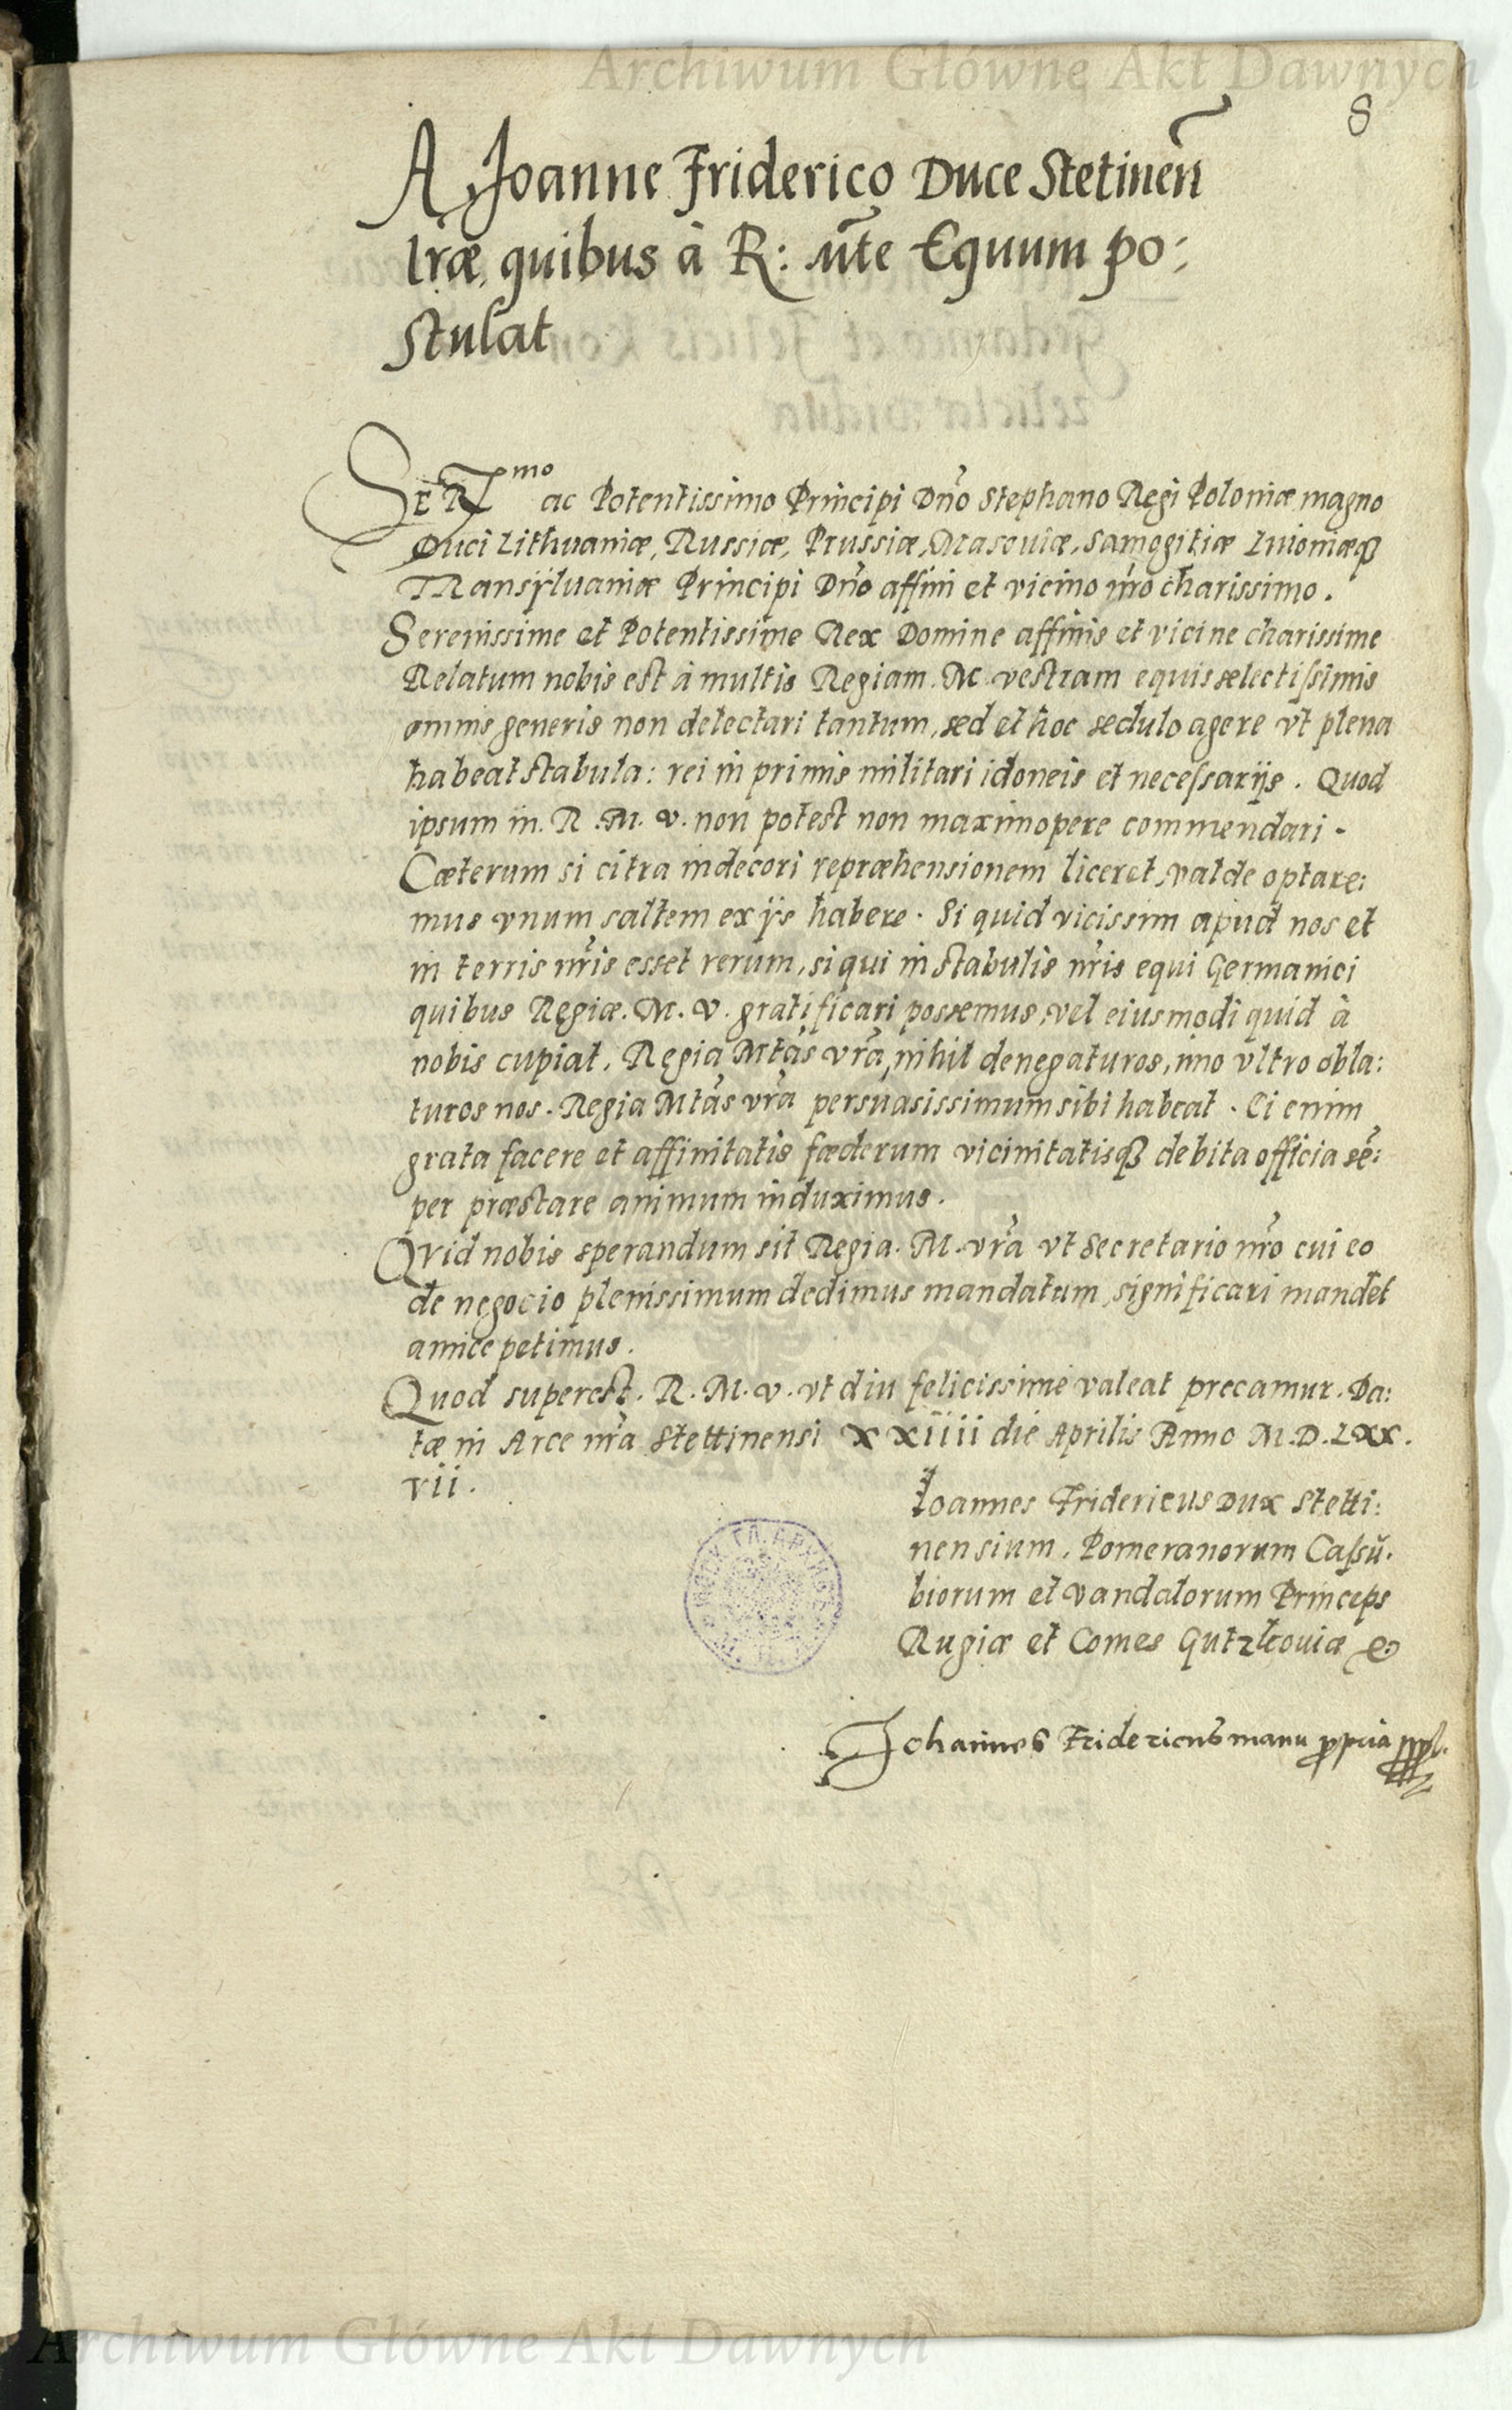 Archiwum Główne Akt Dawnych
8
A Joanne Friderico Duce Stetinen̄
lr̃æ, quibus à R: Mt̃e Equum po:
stulat
SER^mo ac Potentissimo Principi Dño Stephano Regi Poloniæ magno
Duci Lithuaniæ, Russiæ, Prussiæ, Masouiæ, Samogitiæ Liuoniæq3
Transÿluaniæ Principi Dño affini et vicino nr̃o charissimo.
Serenissime et Potentissime Rex Domine affinis et vicine charissime
Relatum nobis est à multis Regiam. M. vestram equis selectissimis
omnis generis non delectari tantum, sed et hoc sedulo agere vt plena
habeat stabula: rei in primis militari idoneis et necessarijs. Quod
ipsum in. R. M. v. non potest non maximopere commendari.
Cæterum si citra indecori repræhensionem liceret, valde optare:
mus vnum saltem ex ijs habere. Si quid vicissim apud nos et
in terris nr̃is esset rerum, si qui in stabulis nr̃is equi Germanici
quibus Regiæ. M. V. gratificari possemus, vel eiusmodi quid à
nobis cupiat, Regia Mtãs vrã, nihil denegaturos, imo vltro obla:
turos nos. Regia Mtãs vrã persuasissimum sibi habeat. Ei enim
grata facere et affinitatis fæderum vicinitatisq3 debita officia sẽ:
per præstare animum induximus.
Qvid nobis sperandum sit Regia. M. vrã vt Secretario nr̃o cui eo
de negocio plenissimum dedimus mandatum, significari mandet
amice petimus.
Quod superest. R. M. v. vt diu felicissime valeat precamur. Da:
tæ in Arce nr̃a Stettinensi XXiiii die Aprilis Anno M.D.LXX.
vii.
Joannes Fridericus Dux Stetti:
nensium, Pomeranorum Cassũ.
biorum et vandalorum Princeps
Rugiæ et Comes Gutzkouiæ &
Johannes Fridericus manu ppria
Archiwum Główne Akt Dawnych